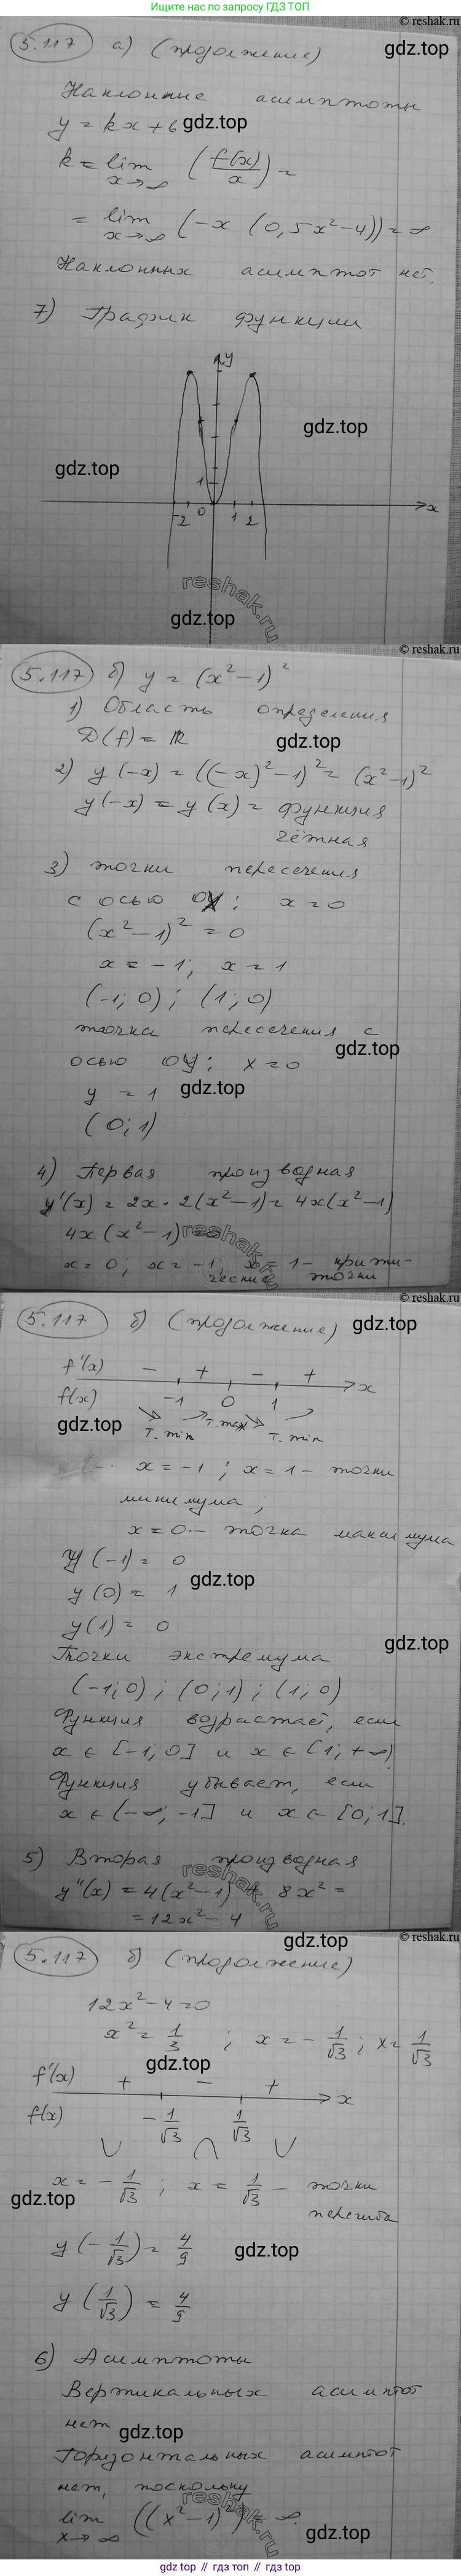 Ищите нас по запросу ГДЗ ТОП
© reshak.ru
5.117 а) (продолжение)
gdz.top
Наклонные асимптоты
y = kx + b
gdz.top
k = lim x→∞ (f(x)/x) =
= lim x→∞ (-x (0,5x²-4)) = ∞
Наклонных асимптот нет.
7) График функции
y
gdz.top
gdz.top
1
-2 0 1 2 x
reshak.ru
gdz.top
© reshak.ru
5.117 б) y = (x²-1)²
1) Область определения
D(f) = ℝ
gdz.top
2) y(-x) = ((-x)²-1)² = (x²-1)²
y(-x) = y(x) = функция
чётная
3) точки пересечения
с осью OX: x = 0
(x²-1)² = 0
x = -1; x = 1
(-1; 0); (1; 0)
точка пересечения с
gdz.top
осью OY: x = 0
y = 1
gdz.top
(0; 1)
4) Первая производная
y'(x) = 2x · 2(x²-1) = 4x(x²-1)
4x (x²-1) = 0
reshak.ru
x = 0; x = -1; x = 1 - крити-
ческие точки
© reshak.ru
5.117 б) (продолжение)
gdz.top
f'(x) - + - + x
f(x) -1 0 1
gdz.top
т. min т. max т. min
x = -1; x = 1 - точки
минимума;
x = 0 - точка максимума
y(-1) = 0
y(0) = 1
gdz.top
y(1) = 0
gdz.top
Точки экстремума
(-1; 0); (0; 1); (1; 0)
Функция возрастает, если
x ∈ [-1; 0] и x ∈ [1; +∞)
Функция убывает, если
x ∈ (-∞; -1] и x ∈ [0; 1].
5) Вторая производная
reshak.ru
y''(x) = 4(x²-1) + 8x² =
= 12x² - 4
gdz.top
© reshak.ru
5.117 б) (продолжение)
12x² - 4 = 0
x² = 1/3; x = -1/√3; x = 1/√3
gdz.top
f'(x) + - + x
f(x) -1/√3 1/√3
x = -1/√3; x = 1/√3 - точки
gdz.top
перегиба
y(-1/√3) = 4/9
gdz.top
y(1/√3) = 4/9
6) Асимптоты
Вертикальных асимптот
нет
gdz.top
Горизонтальных асимптот
нет, поскольку
reshak.ru
lim x→∞ ((x²-1)²) = ∞.
gdz.top
gdz.top // гдз.топ // gdz.top